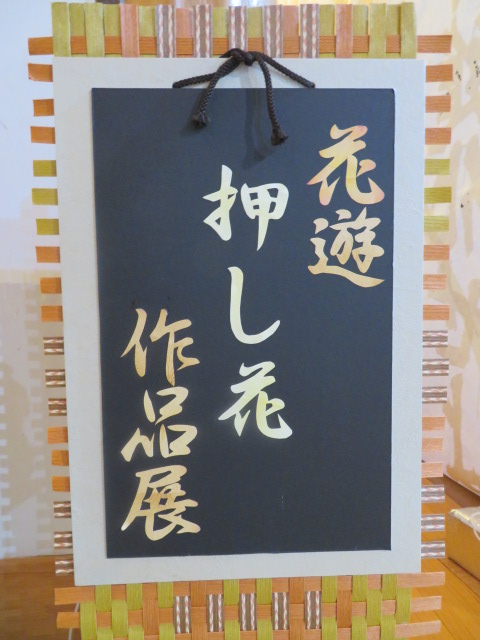 花遊
押し花
作品展